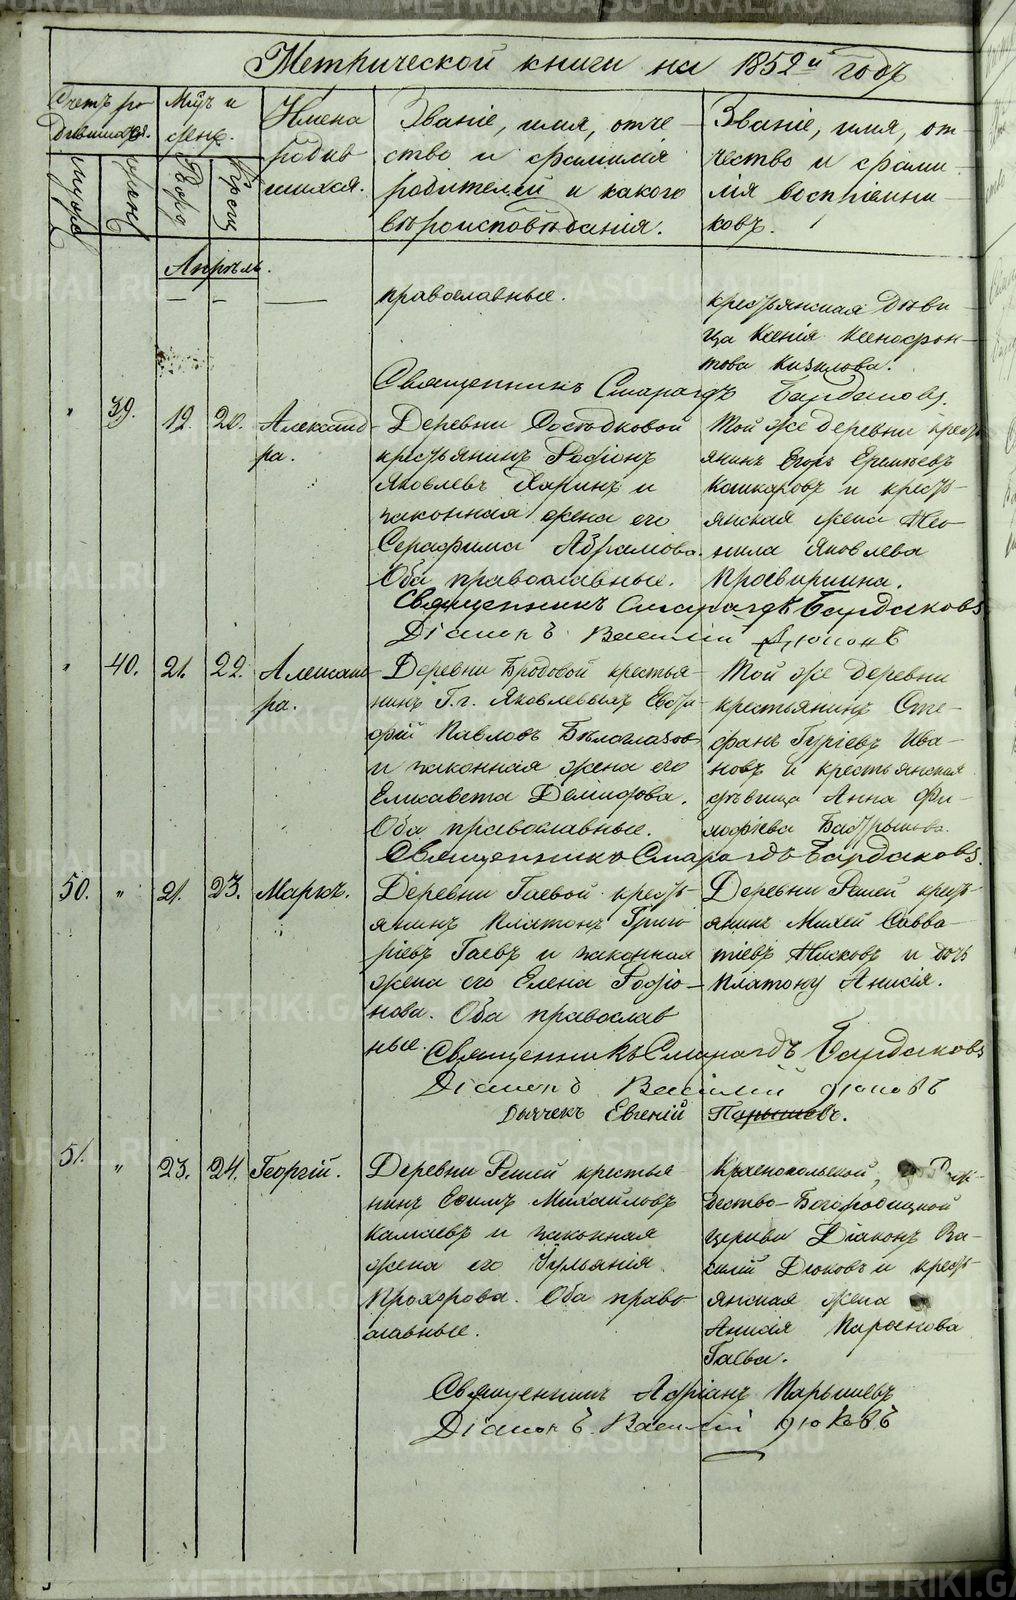 Метрической книги на 1852й годъ
Счетъ ро-
дившихся.
Мѣсяцъ и
день.
Имена
родив
шихся.
Званіе, имя, отче
ство и фамилія
родителей и какого
вѣроисповѣданія.
Званіе, имя, от-
чество и фами-
лія воспріемни-
ковъ.
Апрѣль.
православные.
крестьянская дѣви-
ца Ксенія Ксенофон-
това
Священникъ Смарагдъ Бардаковъ.
" 39. 19. 20. Александ-
ра.
Деревни
крестьянинъ Родіонъ
Яковлевъ и
законная жена его
Серафима Абрамова.
Оба православные.
Той же деревни крестъ
янинъ Егоръ Еремѣевъ
Кашкаровъ и кресть-
янская жена Нео-
нила Яковлева
Просвирнина.
Священникъ Смарагдъ Бардаковъ
Діаконъ Василій Дюковъ
" 40. 21. 22. Алексан
ра.
Деревни Бродовой крестья-
нинъ Г.г. Яковлевыхъ
Павловъ Бѣлоглазовъ
и законная жена его
Елисавета Демидова.
Оба православные.
Той же деревни
крестьянинъ Сте-
фанъ Гуріевъ Ива-
новъ и крестьянская
дѣвица Анна Фи-
лофѣева
Священникъ Смарагдъ Бардаковъ.
50. " 21. 23. Маркъ.
Деревни Гаевой кресть
янинъ Платонъ Григо
ріевъ Гаевъ и законная
жена его Елена Родіо-
нова. Оба православ
ные.
Деревни Решей кресть
янинъ Михей Савва-
тіевъ и дочь
Платону Анисія.
Священникъ Смарагдъ Бардаковъ
Діаконъ Василій Дюковъ
Дьячекъ Евгеній Парышевъ.
51. " 23. 24. Георгій.
Деревни Решей крестья
нинъ Ефимъ Михайловъ
Камаевъ и законная
жена его Іульянія
Прохорова. Оба право
славные.
Краснопольской,
дество-Богородицкой
церкви Діаконъ Ва-
силій Дюковъ и кресть-
янская жена
Анисія
Гаева.
Священникъ Адріанъ Парышевъ
Діаконъ Василій Дюковъ
METRIKI.GASO-URAL.RU